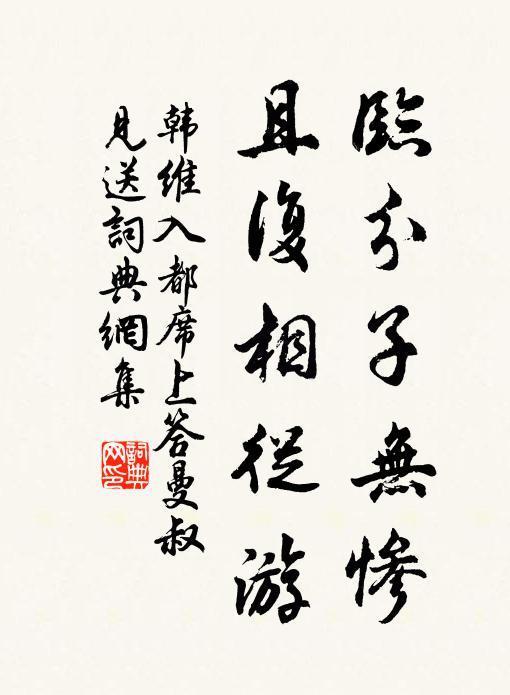 臨分子無慘
且復相從游
韩維入都席上答曼叔
見送詞典網集
詞典
网印